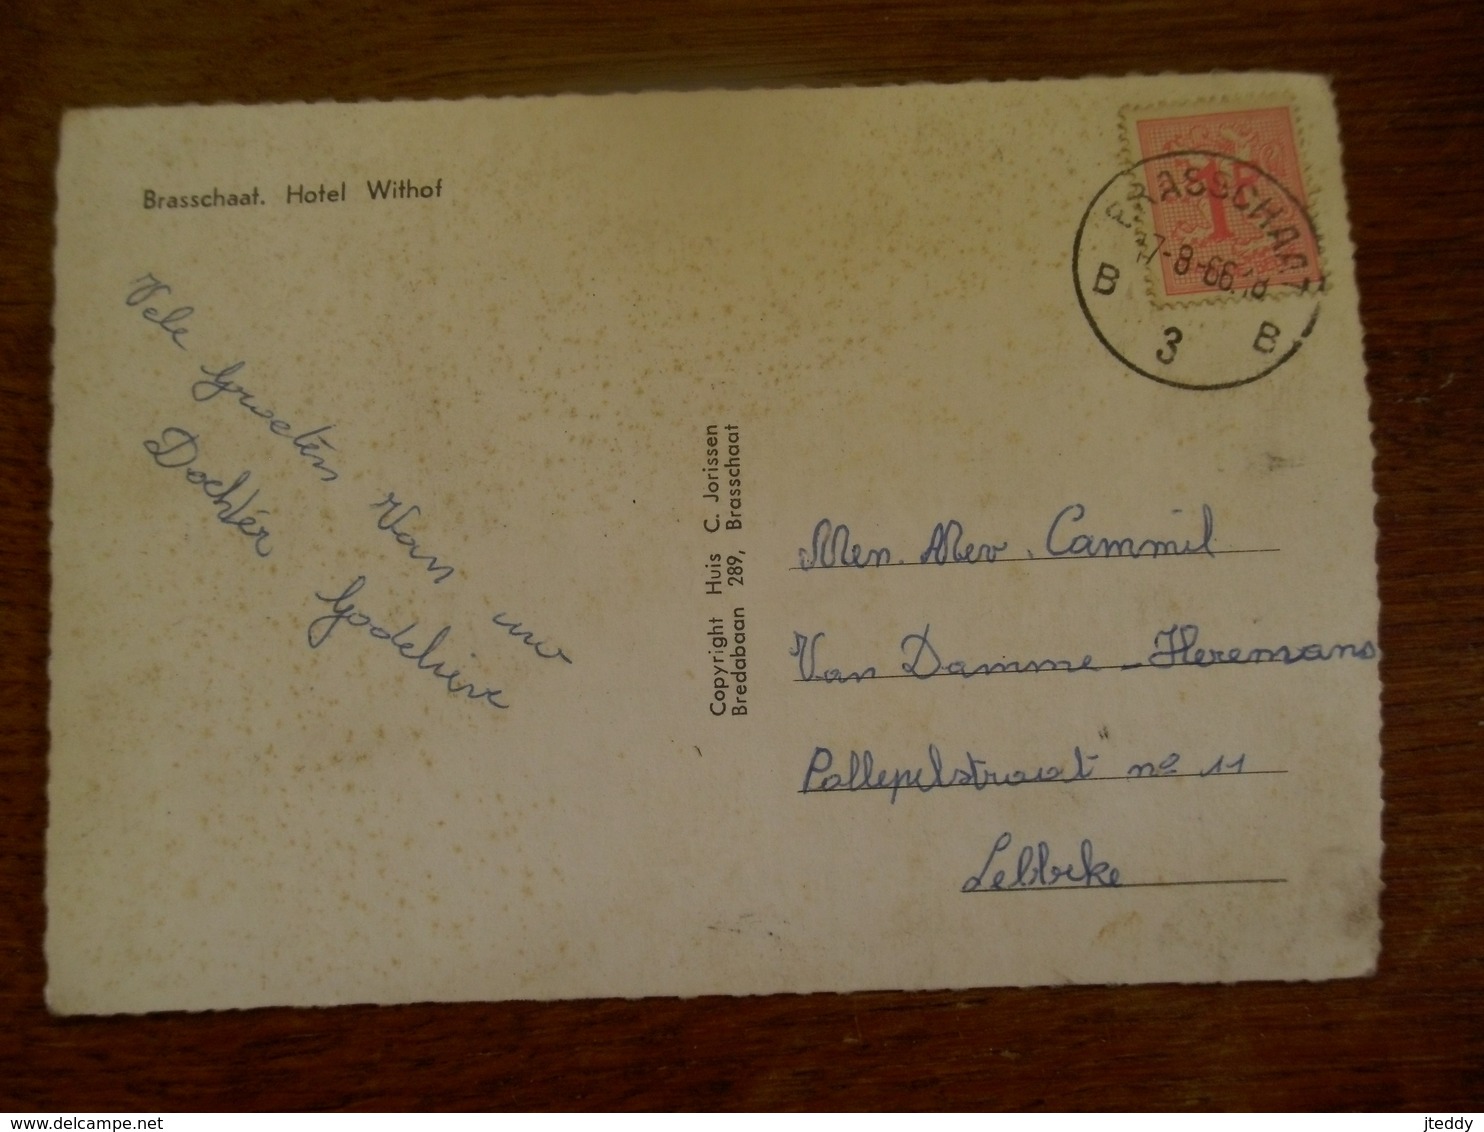 Brasschaat. Hotel Withof
Vele Groeten Van uw
Dochter Godelieve
Copyright Huis C. Jorissen
Bredabaan 289, Brasschaat
BRASSCHAAT
-8-66.18
B 3 B
1
Men. Mev. Cammil
Van Damme - Heremans
Pollepelstraat no 11
Lebbeke
jteddy